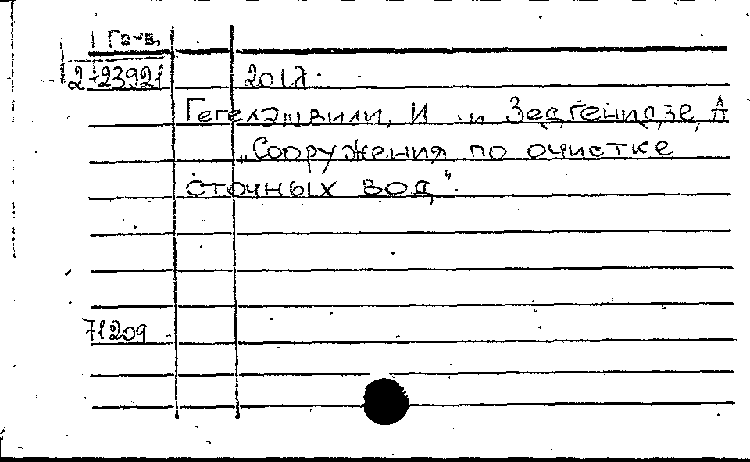 Га-в,
2-23921
201л.
Гегелашвили, И и Зедгенидзе, А
„Сооружения по очистке
сточных вод".
71209